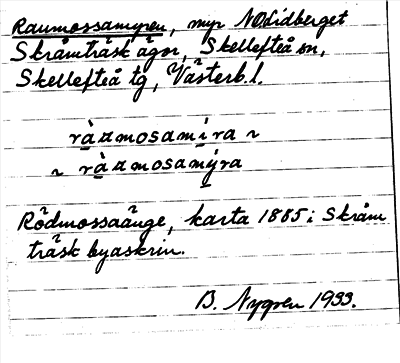 Raumossamyren, myr NO Lidberget
Skråmträsk ägor, Skellefteå sn,
Skellefteå tg, Västerb. l.
ràʌmosamíra ~
~ ràʌmosamýra
Rödmossaänge, karta 1885 i Skråm
träsk byaskrin.
B. Nygren 1933.